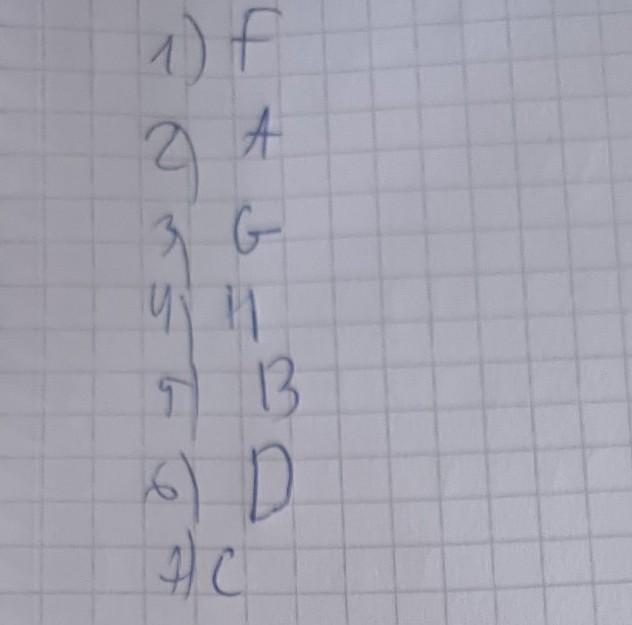 1) F
2) A
3) G
4) H
5) B
6) D
7) C